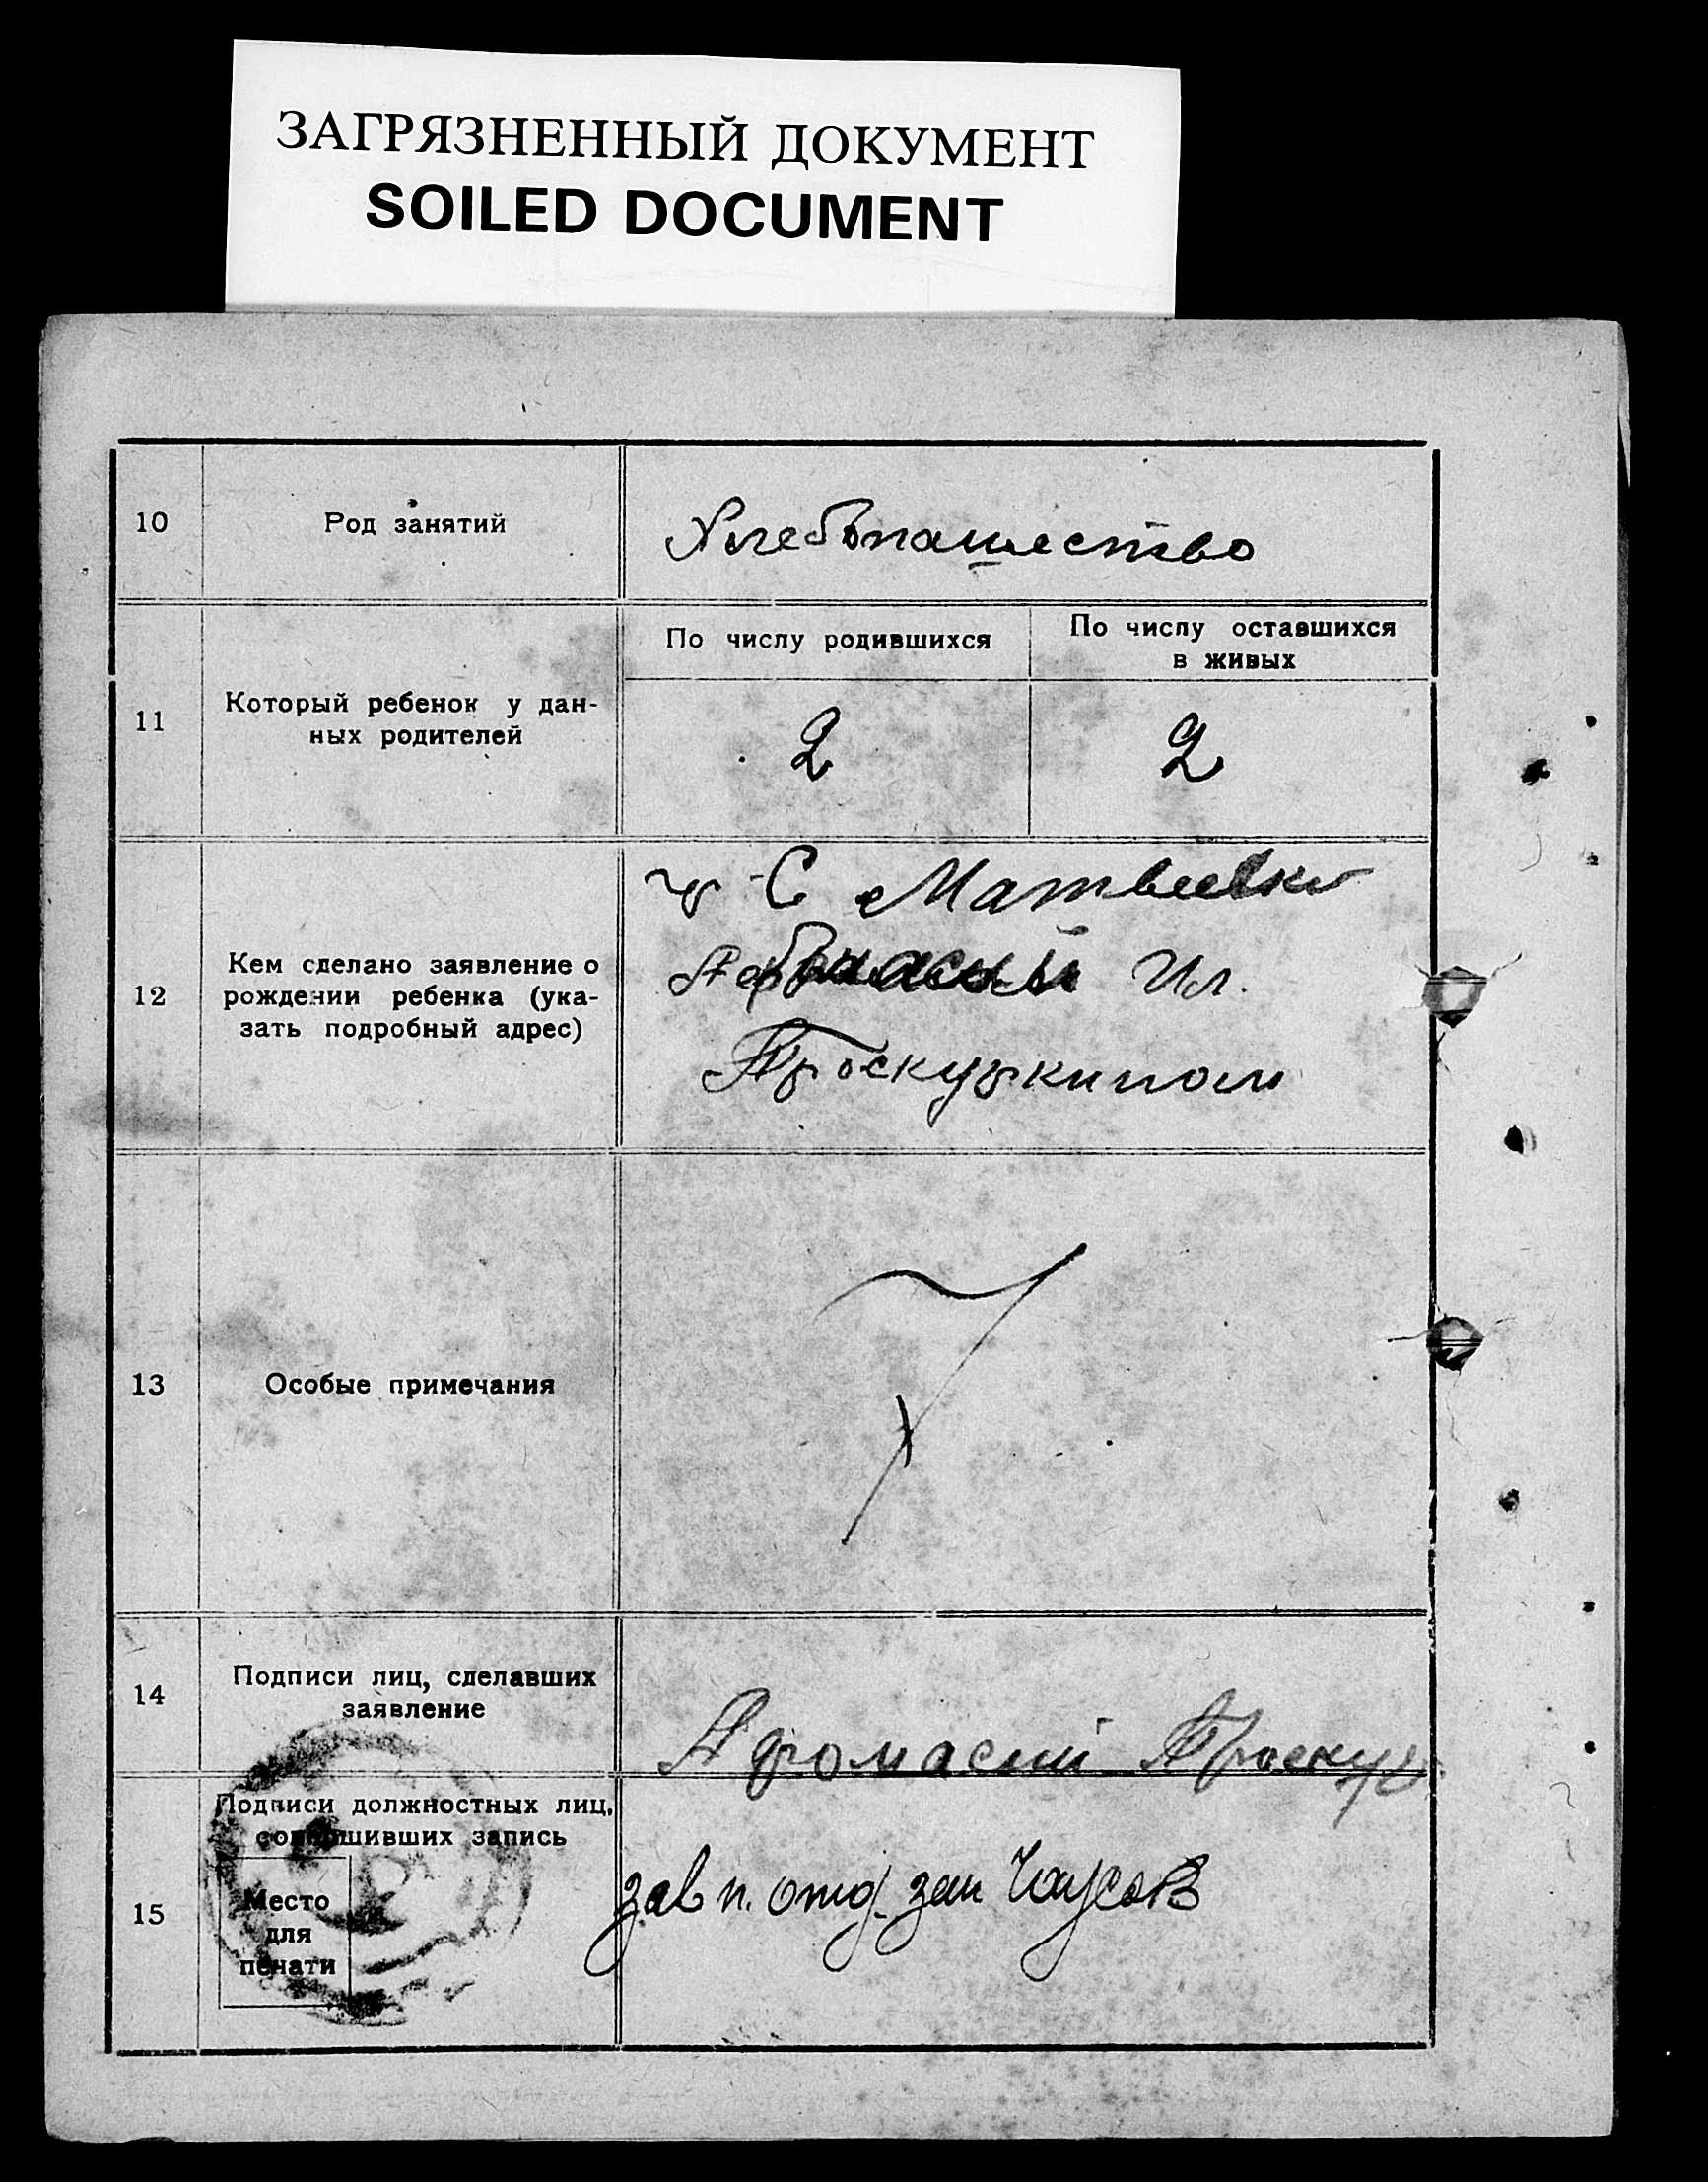 ЗАГРЯЗНЕННЫЙ ДОКУМЕНТ
SOILED DOCUMENT
10
Род занятий
Хлебопашество
11
Который ребенок у дан-
ных родителей
По числу родившихся
По числу оставшихся
в живых
2
2
12
Кем сделано заявление о
рождении ребенка (ука-
зать подробный адрес)
гр С Матвеевки
Ил.
Проскуркиным
13
Особые примечания
14
Подписи лиц, сделавших
заявление
Афонасий Проскур
15
Подписи должностных лиц,
совершивших запись
Место
для
печати
зав п. отд.